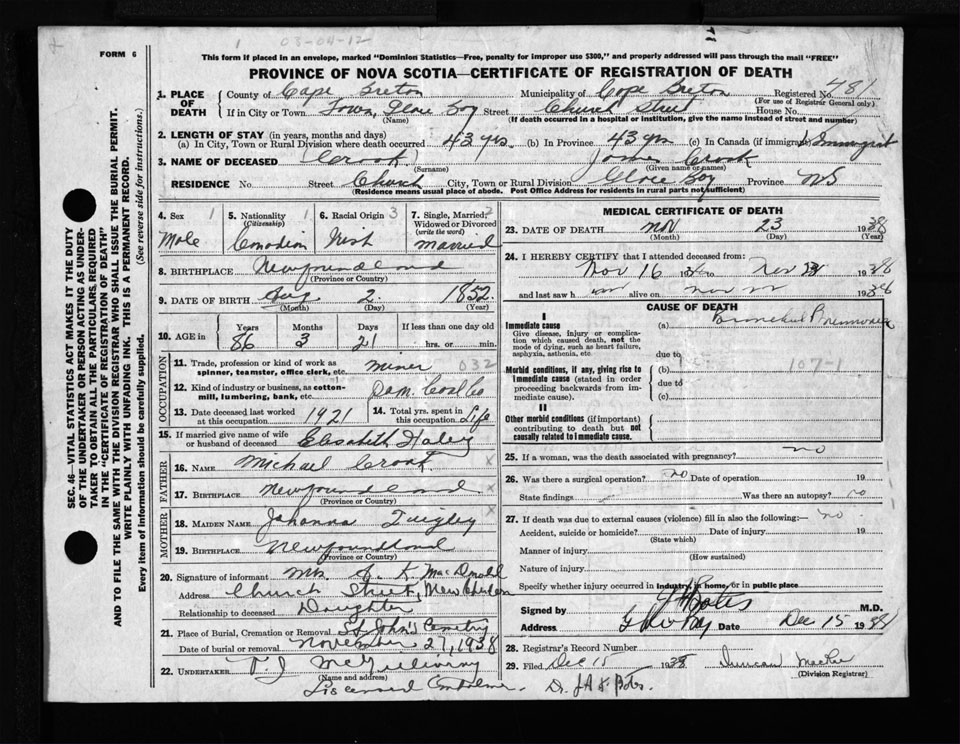 03-04-12
FORM 6
This form if placed in an envelope, marked "Dominion Statistics—Free, penalty for improper use $300," and properly addressed will pass through the mail "FREE"
PROVINCE OF NOVA SCOTIA—CERTIFICATE OF REGISTRATION OF DEATH
SEC. 46—VITAL STATISTICS ACT MAKES IT THE DUTY
OF THE UNDERTAKER OR PERSON ACTING AS UNDER-
TAKER TO OBTAIN ALL THE PARTICULARS REQUIRED
IN THE "CERTIFICATE OF REGISTRATION OF DEATH"
AND TO FILE THE SAME WITH THE DIVISION REGISTRAR WHO SHALL ISSUE THE BURIAL PERMIT.
WRITE PLAINLY WITH UNFADING INK. THIS IS A PERMANENT RECORD.
Every item of information should be carefully supplied. (See reverse side for instructions.)
1. PLACE OF DEATH County of Cape Breton Municipality of Cape Breton Registered No. 781
(For use of Registrar General only)
If in City or Town Town, Glace Bay Street Church Street House No.
(Name) (If death occurred in a hospital or institution, give the name instead of street and number)
2. LENGTH OF STAY (in years, months and days)
(a) In City, Town or Rural Division where death occurred 43 yrs. (b) In Province 43 yrs (c) In Canada (if immigrant) Immigrant
3. NAME OF DECEASED Crook James Crook
(Surname) (Given name or names)
RESIDENCE No. Street Church City, Town or Rural Division Glace Bay Province NS
(Residence means usual place of abode. Post Office Address for residents in rural parts not sufficient)
4. Sex 1 Male
5. Nationality (Citizenship) 1 Canadian
6. Racial Origin 3 Irish
7. Single, Married, Widowed or Divorced (write the word) 2 married
8. BIRTHPLACE Newfoundland
(Province or Country)
9. DATE OF BIRTH Aug 2. 1852.
(Month) (Day) (Year)
10. AGE in Years 86 Months 3 Days 21 If less than one day
hrs. or min.
OCCUPATION
11. Trade, profession or kind of work as spinner, teamster, office clerk, etc. miner 032
12. Kind of industry or business, as cotton-mill, lumbering, bank, etc. Dom. Coal Co
13. Date deceased last worked at this occupation 1921 14. Total yrs. spent in this occupation Life
15. If married give name of wife or husband of deceased Elisabeth Haley
FATHER
16. NAME Michael Crook x
17. BIRTHPLACE Newfoundland x
(Province or Country)
MOTHER
18. MAIDEN NAME Johanna x
19. BIRTHPLACE Newfoundland
(Province or Country)
20. Signature of informant Mrs. A. K. MacDonald
Address Church Street, New Aberdeen
Relationship to deceased Daughter
21. Place of Burial, Cremation or Removal St John's Cemetery
Date of burial or removal November 27, 1938
22. UNDERTAKER McGillivray
(Name and address)
Liscensed Embalmer.
MEDICAL CERTIFICATE OF DEATH
23. DATE OF DEATH Nov 23 1938
(Month) (Day) (Year)
24. I HEREBY CERTIFY that I attended deceased from:
Nov 16 1938 to Nov 1938
and last saw h im alive on Nov 1938
CAUSE OF DEATH
I
Immediate cause (a) Bronchial Pneumonia
Give disease, injury or complication which caused death, not the mode of dying, such as heart failure, asphyxia, asthenia, etc.
due to
Morbid conditions, if any, giving rise to immediate cause (stated in order proceeding backwards from immediate cause). (b) 107-1
due to
(c)
II
Other morbid conditions (if important) contributing to death but not causally related to immediate cause.
25. If a woman, was the death associated with pregnancy? no
26. Was there a surgical operation? no Date of operation 19
State findings - Was there an autopsy? no
27. If death was due to external causes (violence) fill in also the following:— no
Accident, suicide or homicide? Date of injury 19
(State which)
Manner of injury
(How sustained)
Nature of injury
Specify whether injury occurred in industry, in home, or in public place
Signed by M.D.
Address Glace Bay Date Dec 15 1938
28. Registrar's Record Number
29. Filed Dec 15 1938 Duncan
(Division Registrar)
Dr.